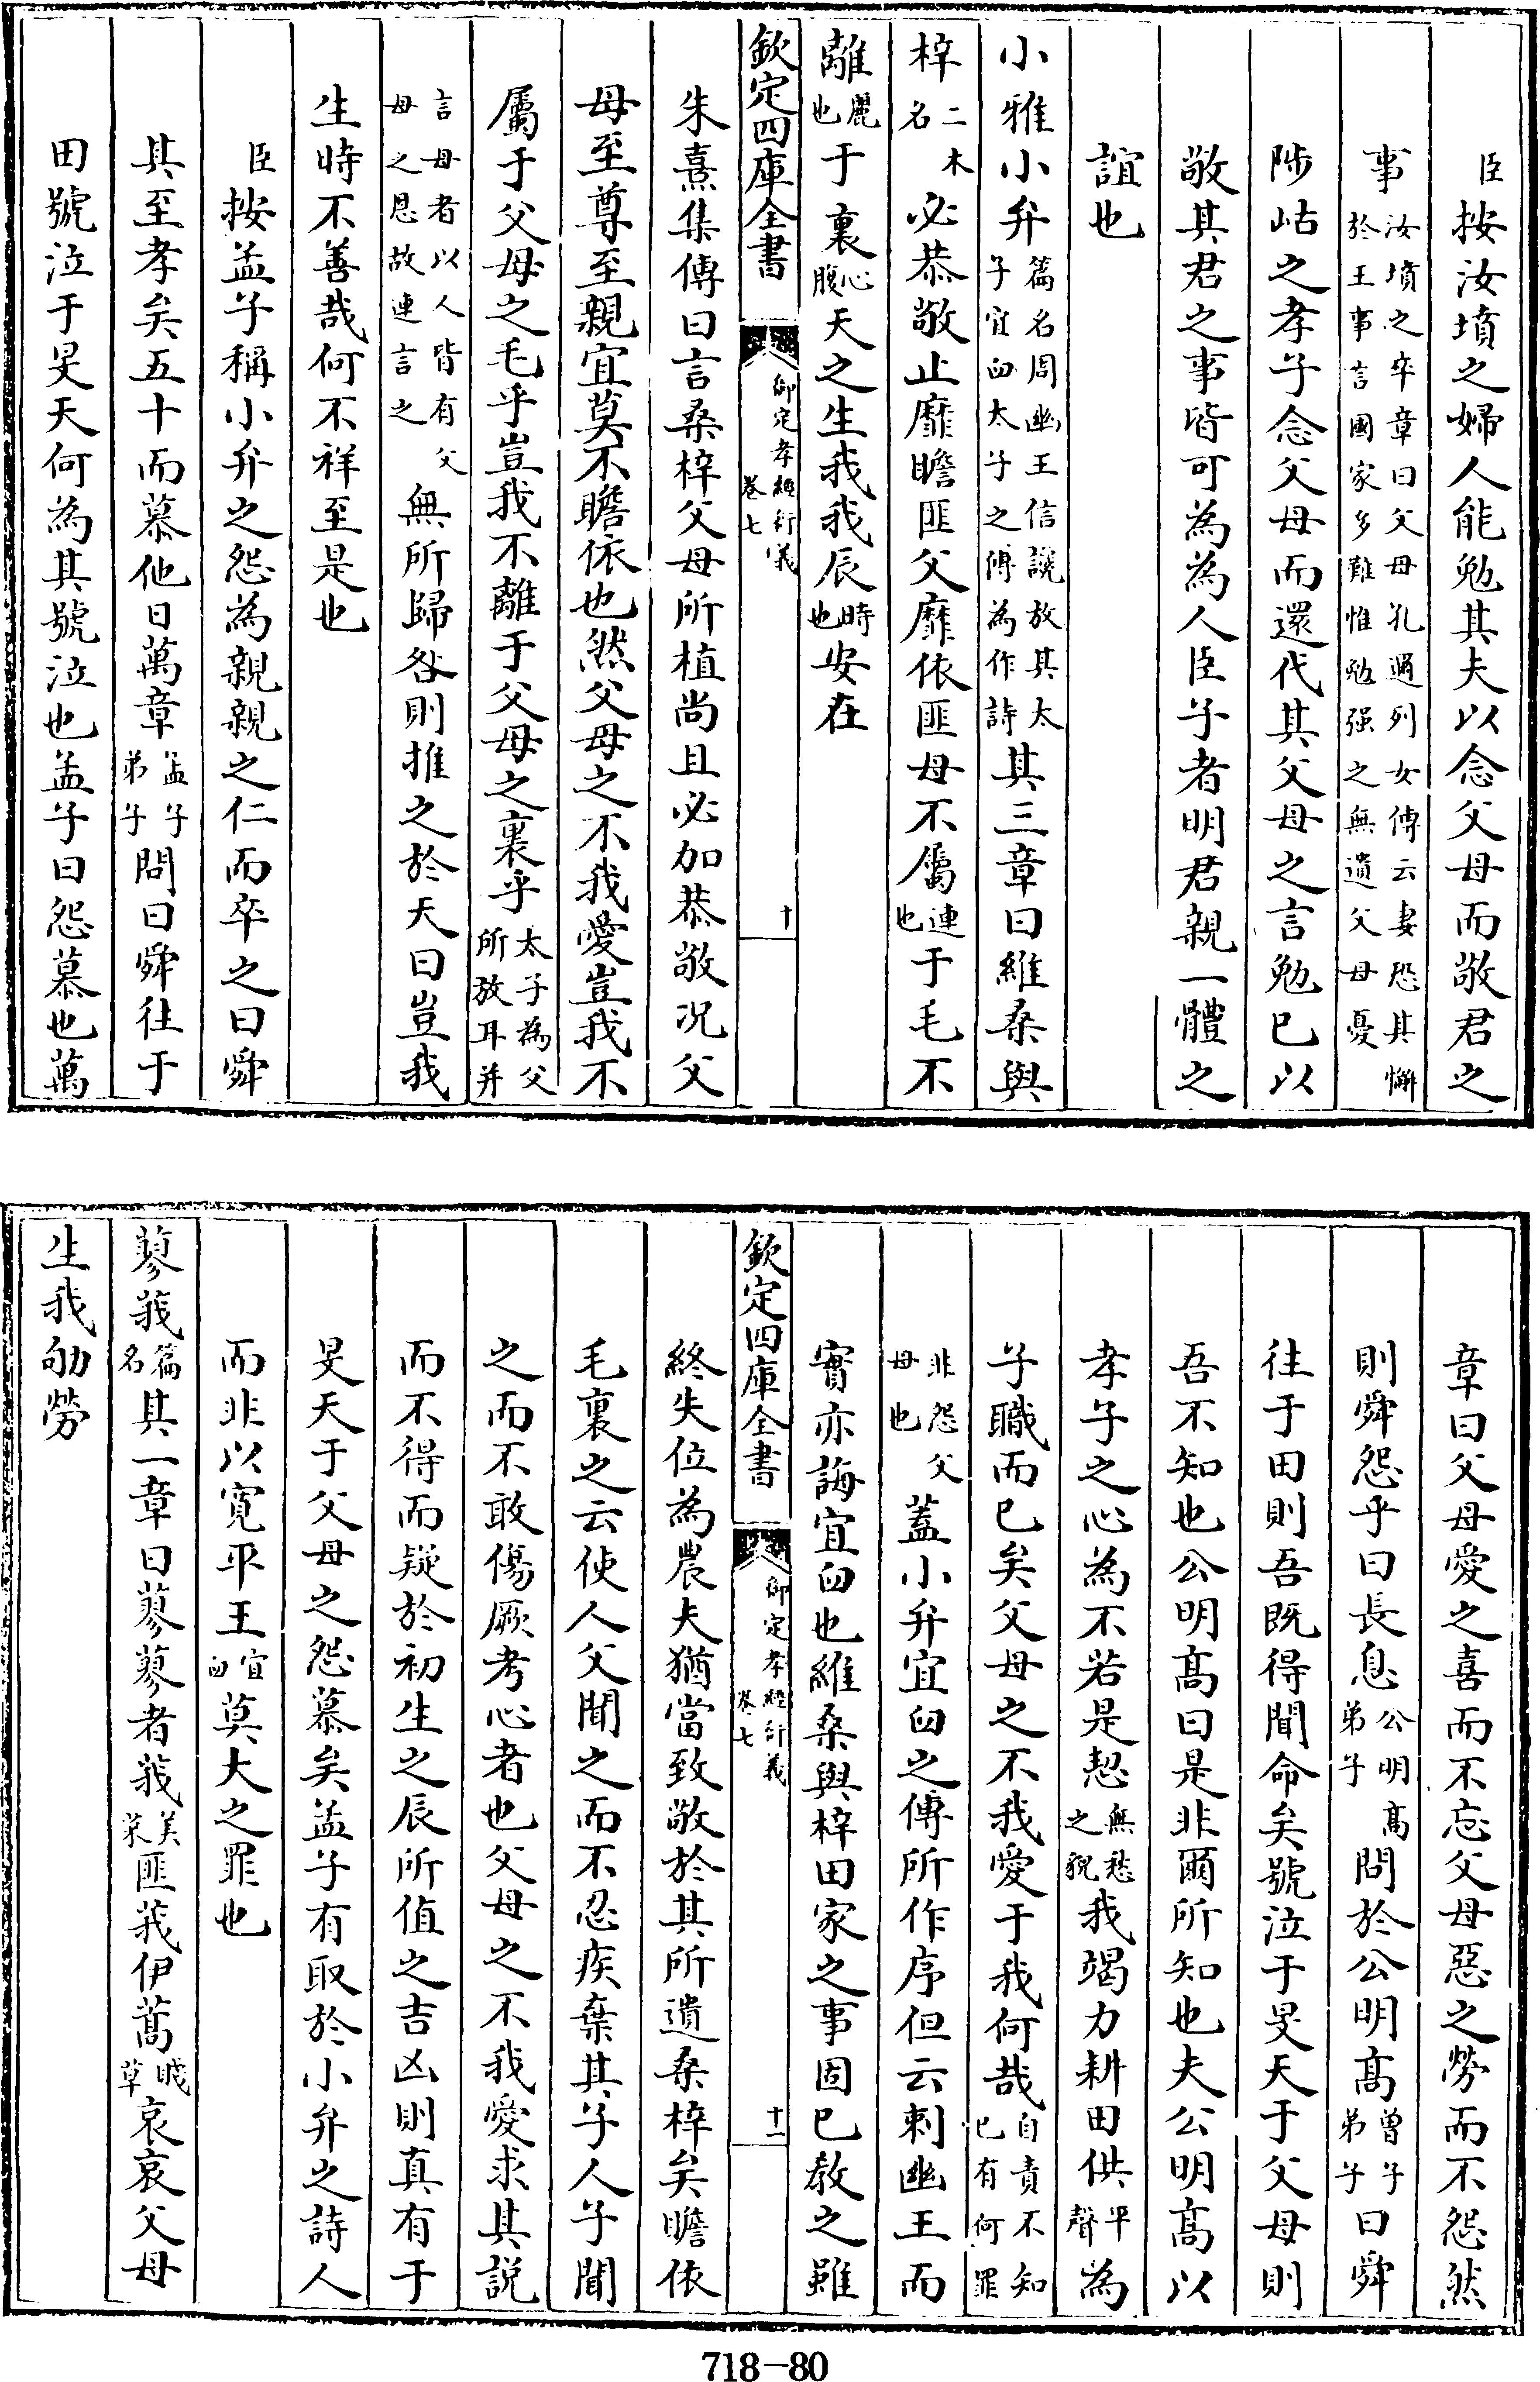 臣按汝墳之婦人能勉其夫以念父母而敬君之
事汝墳之卒章曰父母孔邇列女傳云妻恐其懈於王事言國家多難惟勉强之無遺父母憂
陟岵之孝子念父母而還代其父母之言勉已以
敬其君之事皆可為為人臣子者明君親一體之
誼也
小雅小弁篇名周幽王信讒放其太子宜臼太子之傅為作詩其三章曰維桑與
梓二木名必恭敬止靡瞻匪父靡依匪母不屬連也于毛不
離麗也于裏心腹天之生我我辰時也安在
欽定四庫全書 御定孝經衍義 卷七 十
朱熹集傳曰言桑梓父母所植尚且必加恭敬况父
母至尊至親宜莫不瞻依也然父母之不我愛豈我不
屬于父母之毛乎豈我不離于父母之裏乎太子為父所放耳并
言母者以人皆有父母之恩故連言之無所歸咎則推之於天曰豈我
生時不善哉何不祥至是也
臣按孟子稱小弁之怨為親親之仁而卒之曰舜
其至孝矣五十而慕他日萬章孟子弟子問曰舜往于
田號泣于旻天何為其號泣也孟子曰怨慕也萬
章曰父母愛之喜而不忘父母惡之勞而不怨然
則舜怨乎曰長息公明高弟子問於公明高曾子弟子曰舜
往于田則吾既得聞命矣號泣于旻天于父母則
吾不知也公明高曰是非爾所知也夫公明高以
孝子之心為不若是恝無愁之貌我竭力耕田供平聲為
子職而已矣父母之不我愛于我何哉自責不知已有何罪
非怨父母也蓋小弁宜臼之傅所作序但云刺幽王而
實亦誨宜臼也維桑與梓田家之事固已教之雖
欽定四庫全書 御定孝經衍義 卷七 十一
終失位為農夫猶當致敬於其所遺桑梓矣瞻依
毛裏之云使人父聞之而不忍疾棄其子人子聞
之而不敢傷厥考心者也父母之不我愛求其説
而不得而疑於初生之辰所值之吉凶則真有于
旻天于父母之怨慕矣孟子有取於小弁之詩人
而非以寛平王宜臼莫大之罪也
蓼莪篇名其一章曰蓼蓼者莪美菜匪莪伊蒿賤草哀哀父母
生我劬勞
718-80